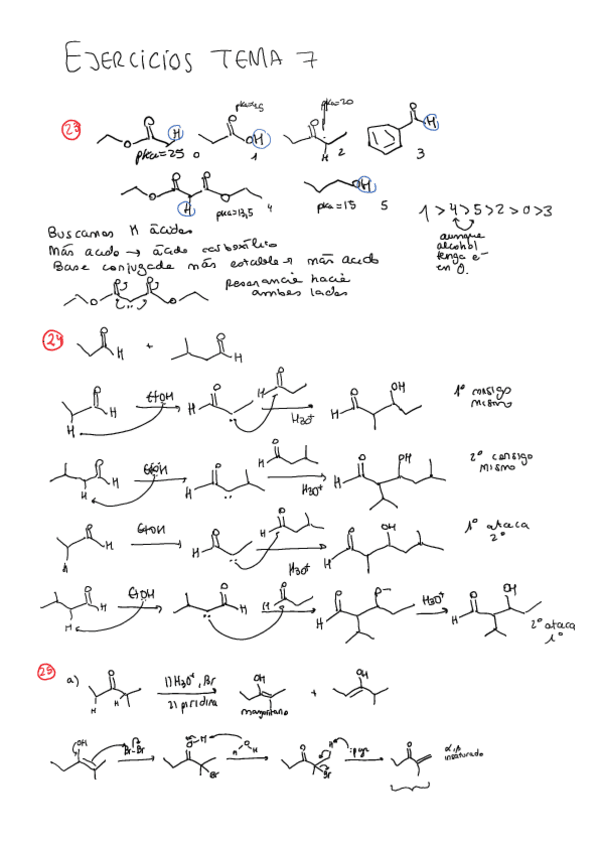 EJERCICIOS TEMA 7
23
pka=4,5
pka=20
H
O
OH
O
H
O
H
O
pka=25
0
1
2
3
H
OH
pka=13,5
4
pka=15
5
1 > 4 > 5 > 2 > 0 > 3
aunque
alcohol
tenga e-
en O.
Buscamos H ácidos
Más acido → ácido carboxílico
Base conjugada más estable → más acido
Resonancia hacia
ambos lados
24
+
EtOH
H3O+
OH
1º consigo
mismo
EtOH
H3O+
OH
2º consigo
mismo
EtOH
H3O+
OH
1º ataca
2º
EtOH
H3O+
OH
2º ataca
1º
25
a)
1) H3O+, Br
2) piridina
OH
mayoritario
+
OH
Br-Br
Br
:pyr
α,β
insaturado